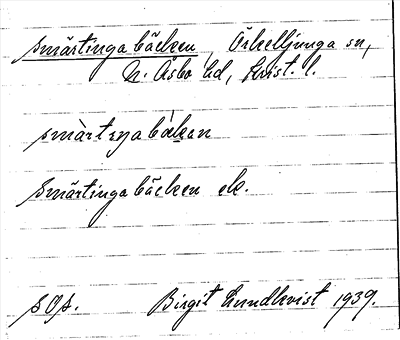 Smärtinga bäcken, Örkelljunga sn,
N. Åsbo hd, Krist. l.
smàrtɪŋa bàkən
Smärtingabäcken ek.
sOp. Birgit Lundkvist 1939.